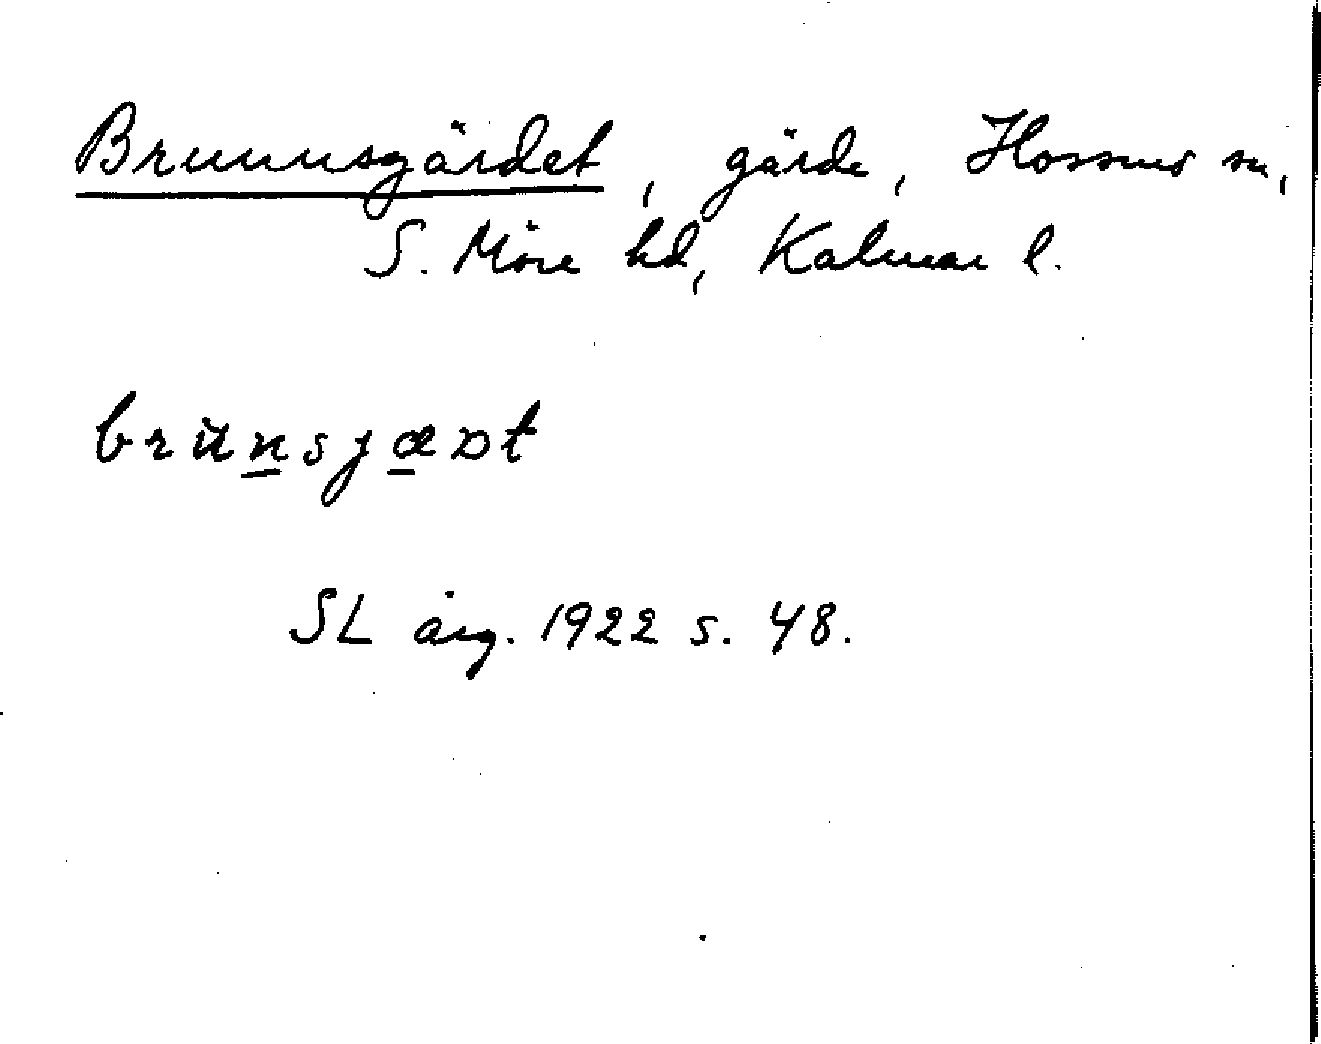 Brunnsgärdet, gärde, Hossmo sn,
S. Möre hd, Kalmar l.
brùn̲sjæ̲ɒt
SL årg. 1922 s. 48.